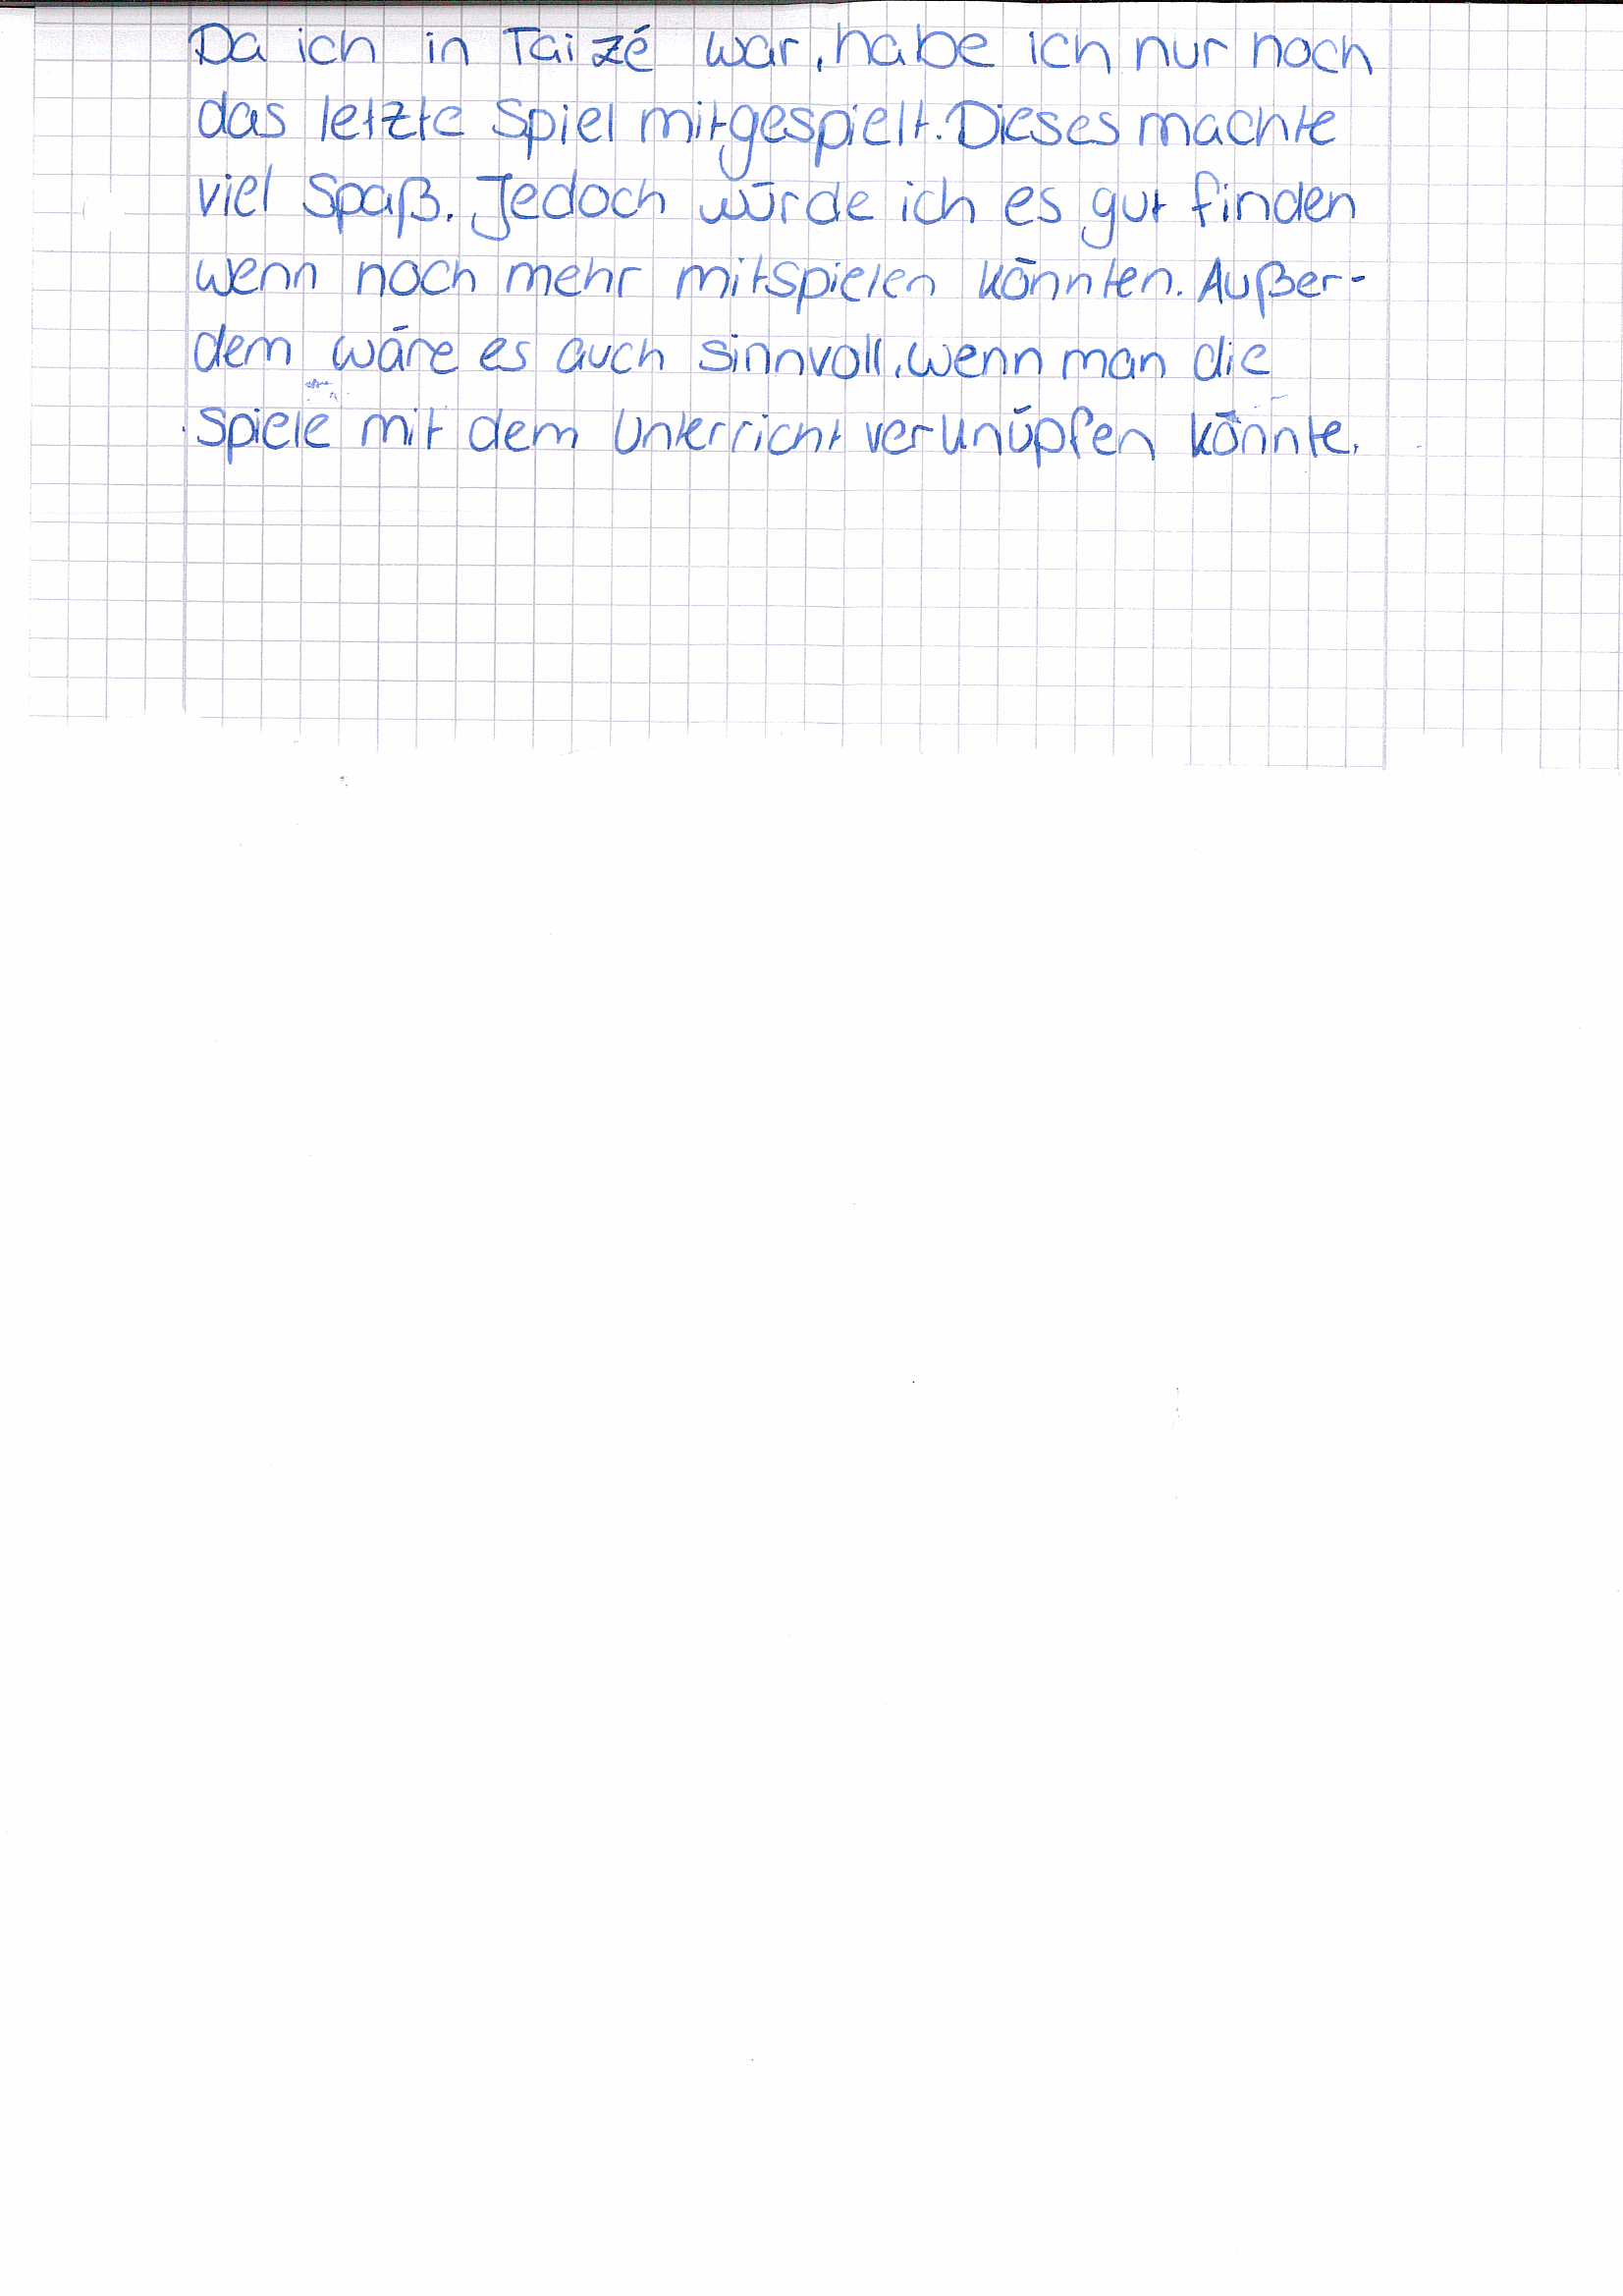 Da ich in Taizé war, habe ich nur noch
das letzte Spiel mitgespielt. Dieses machte
viel Spaß. Jedoch würde ich es gut finden
wenn noch mehr mitspielen könnten. Außer-
dem wäre es auch sinnvoll, wenn man die
Spiele mit dem Unterricht verknüpfen könnte.